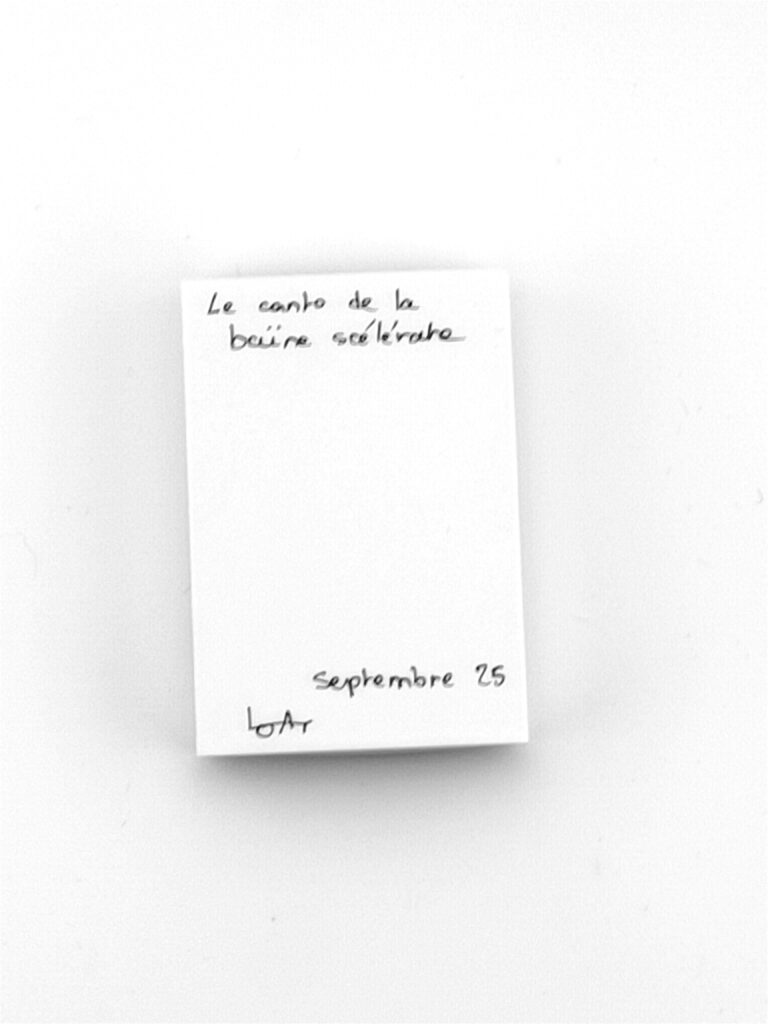 Le canto de la
baïne scélérate
septembre 25